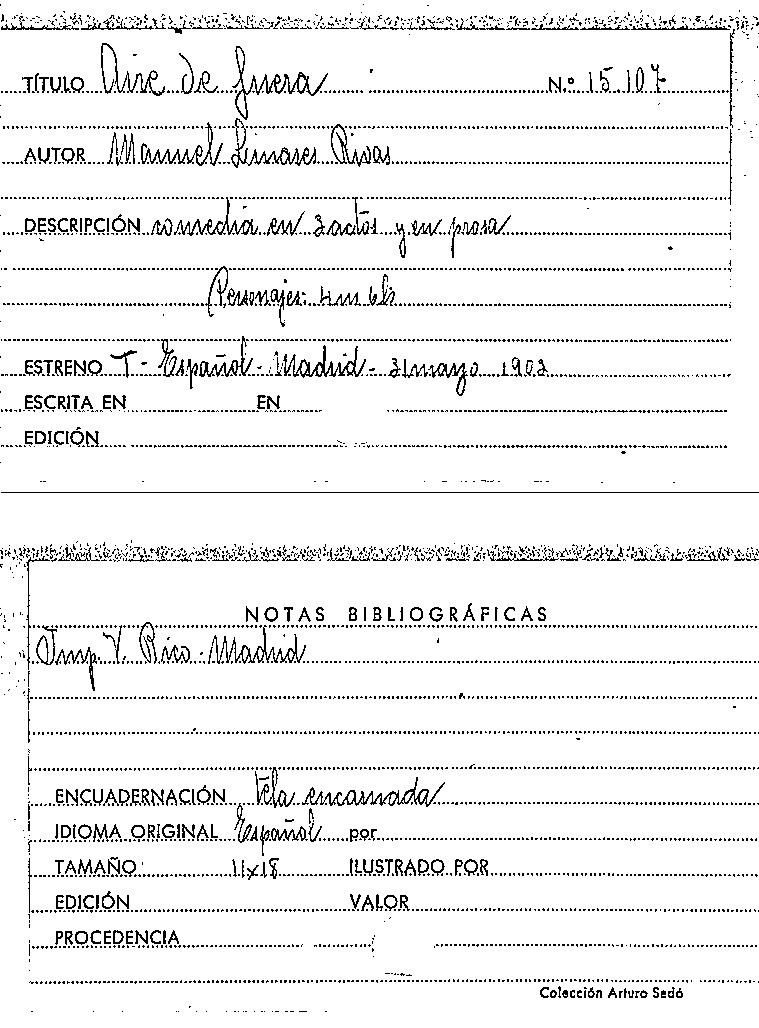 TÍTULO Aire de fuera N.º 15.107
AUTOR Manuel Linares Rivas
DESCRIPCIÓN comedia en 3 actos y en prosa
(Personajes: 4m 6h
ESTRENO T - Español - Madrid - 31 mayo 1903
ESCRITA EN EN
EDICIÓN
NOTAS BIBLIOGRÁFICAS
Imp. V. Rico - Madrid
ENCUADERNACIÓN Tela encarnada
IDIOMA ORIGINAL Español por
TAMAÑO 11x18 ILUSTRADO POR
EDICIÓN VALOR
PROCEDENCIA
Colección Arturo Sedó